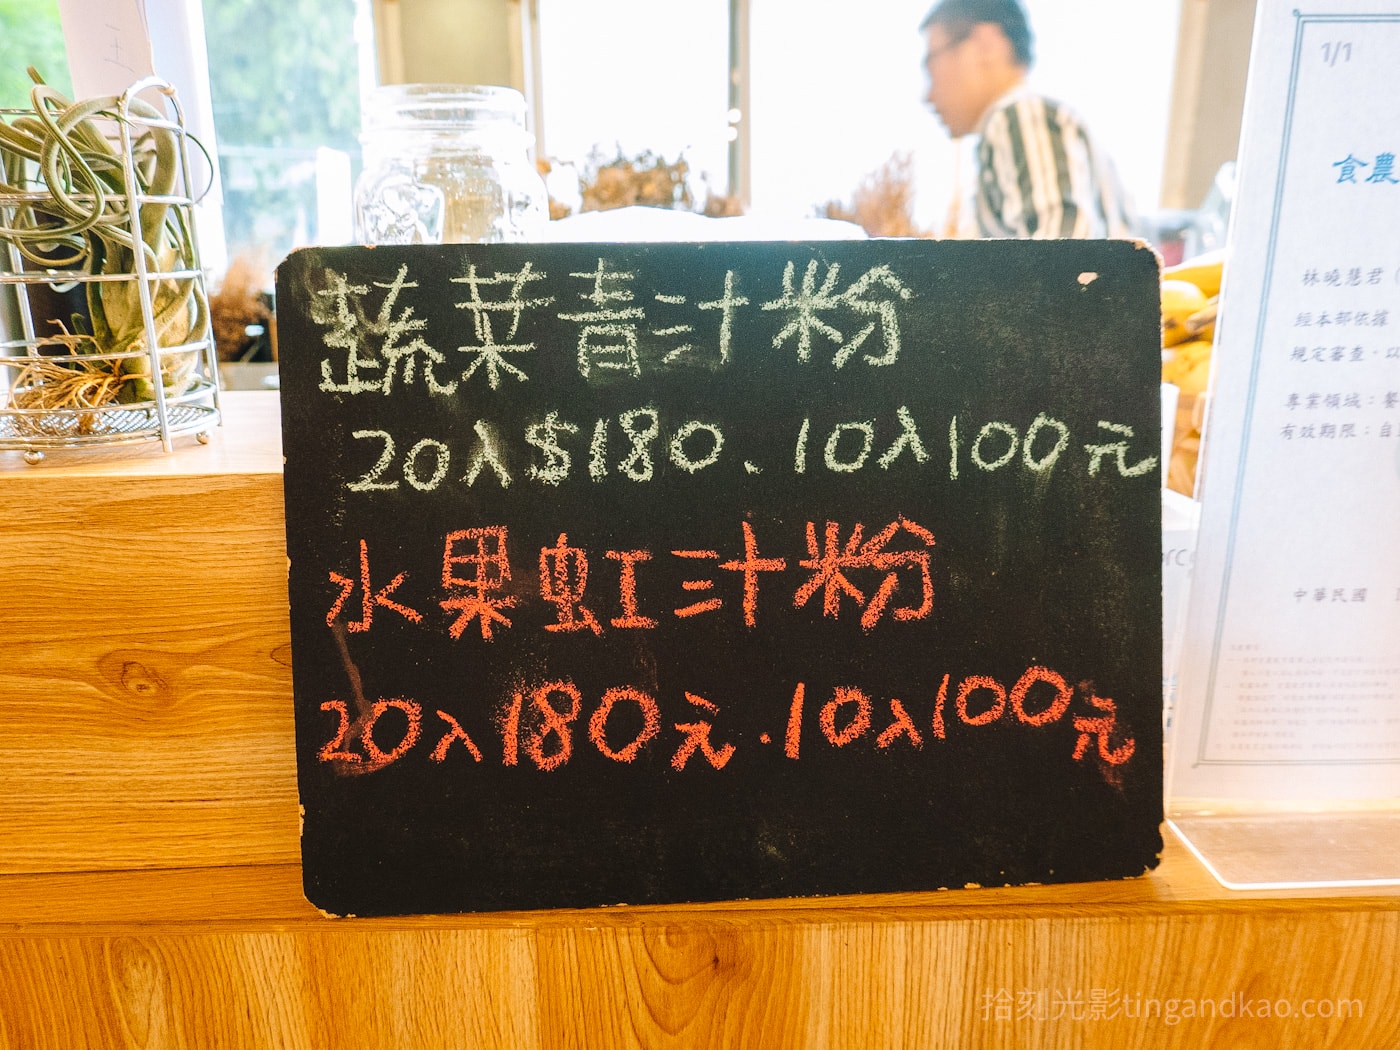 蔬菜青汁粉
20入$180、10入100元
水果虹汁粉
20入180元.10入100元
王
1/1
食農
林曉慧君
經本部依據
規定審查,以
專業領域：餐
有效期限：自
中華民國
拾刻光影tingandkao.com